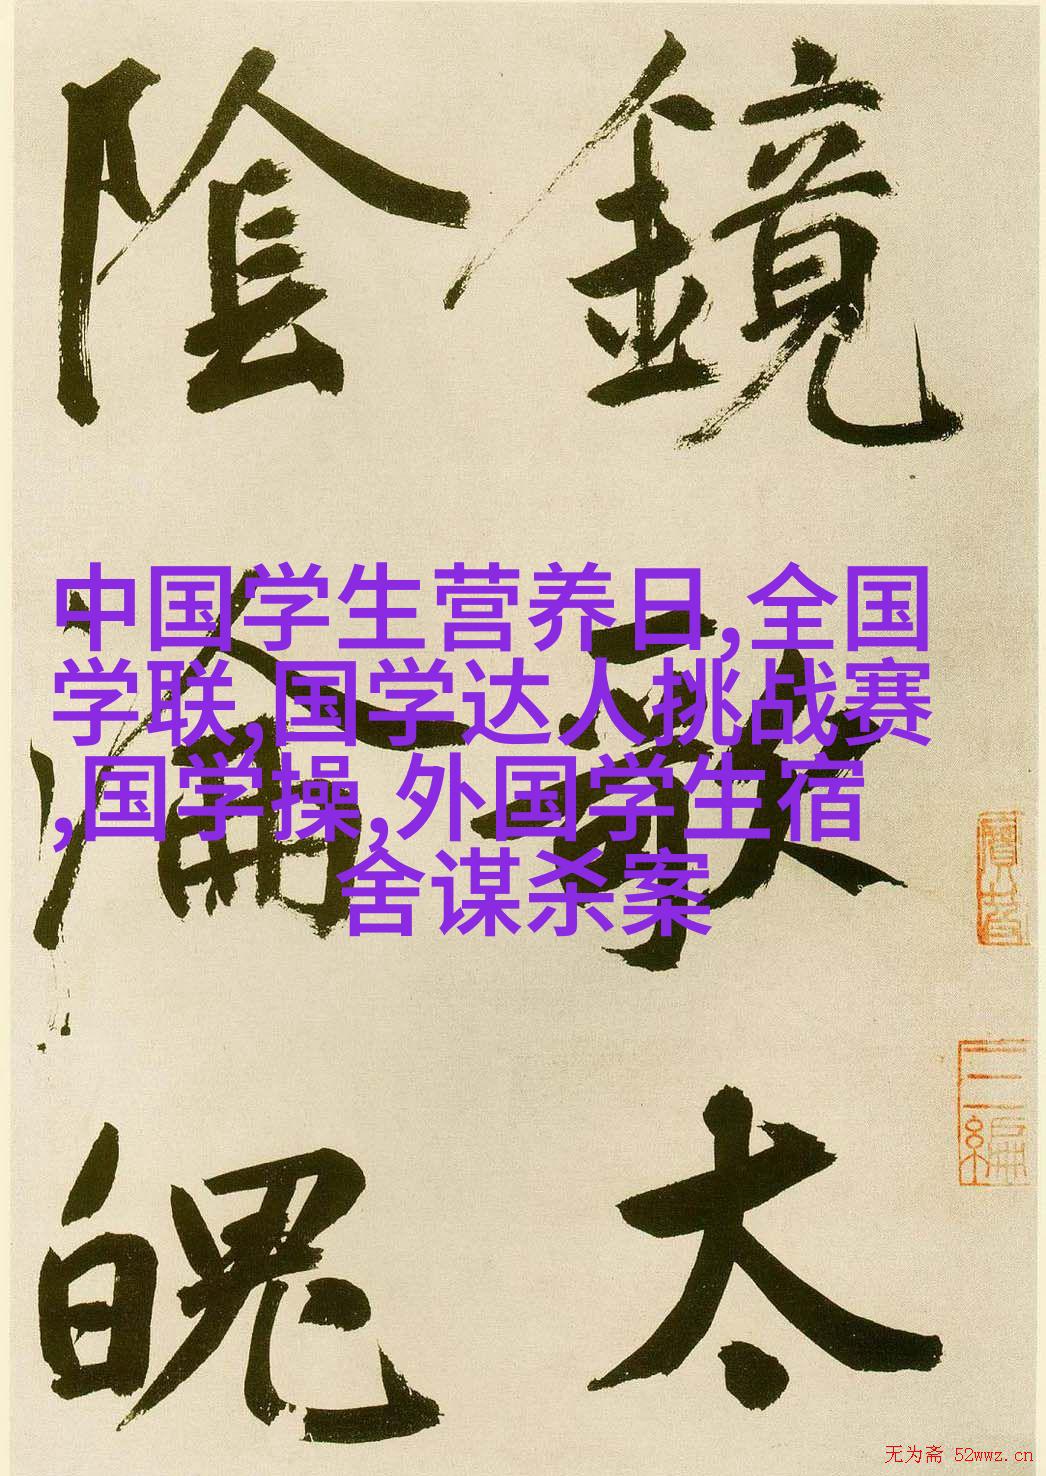 鏡
歌
太
陰
淪
魄
中国学生营养日,全国
学联,国学达人挑战赛
,国学操,外国学生宿
舍谋杀案
三編
无为斋 52wwz.cn